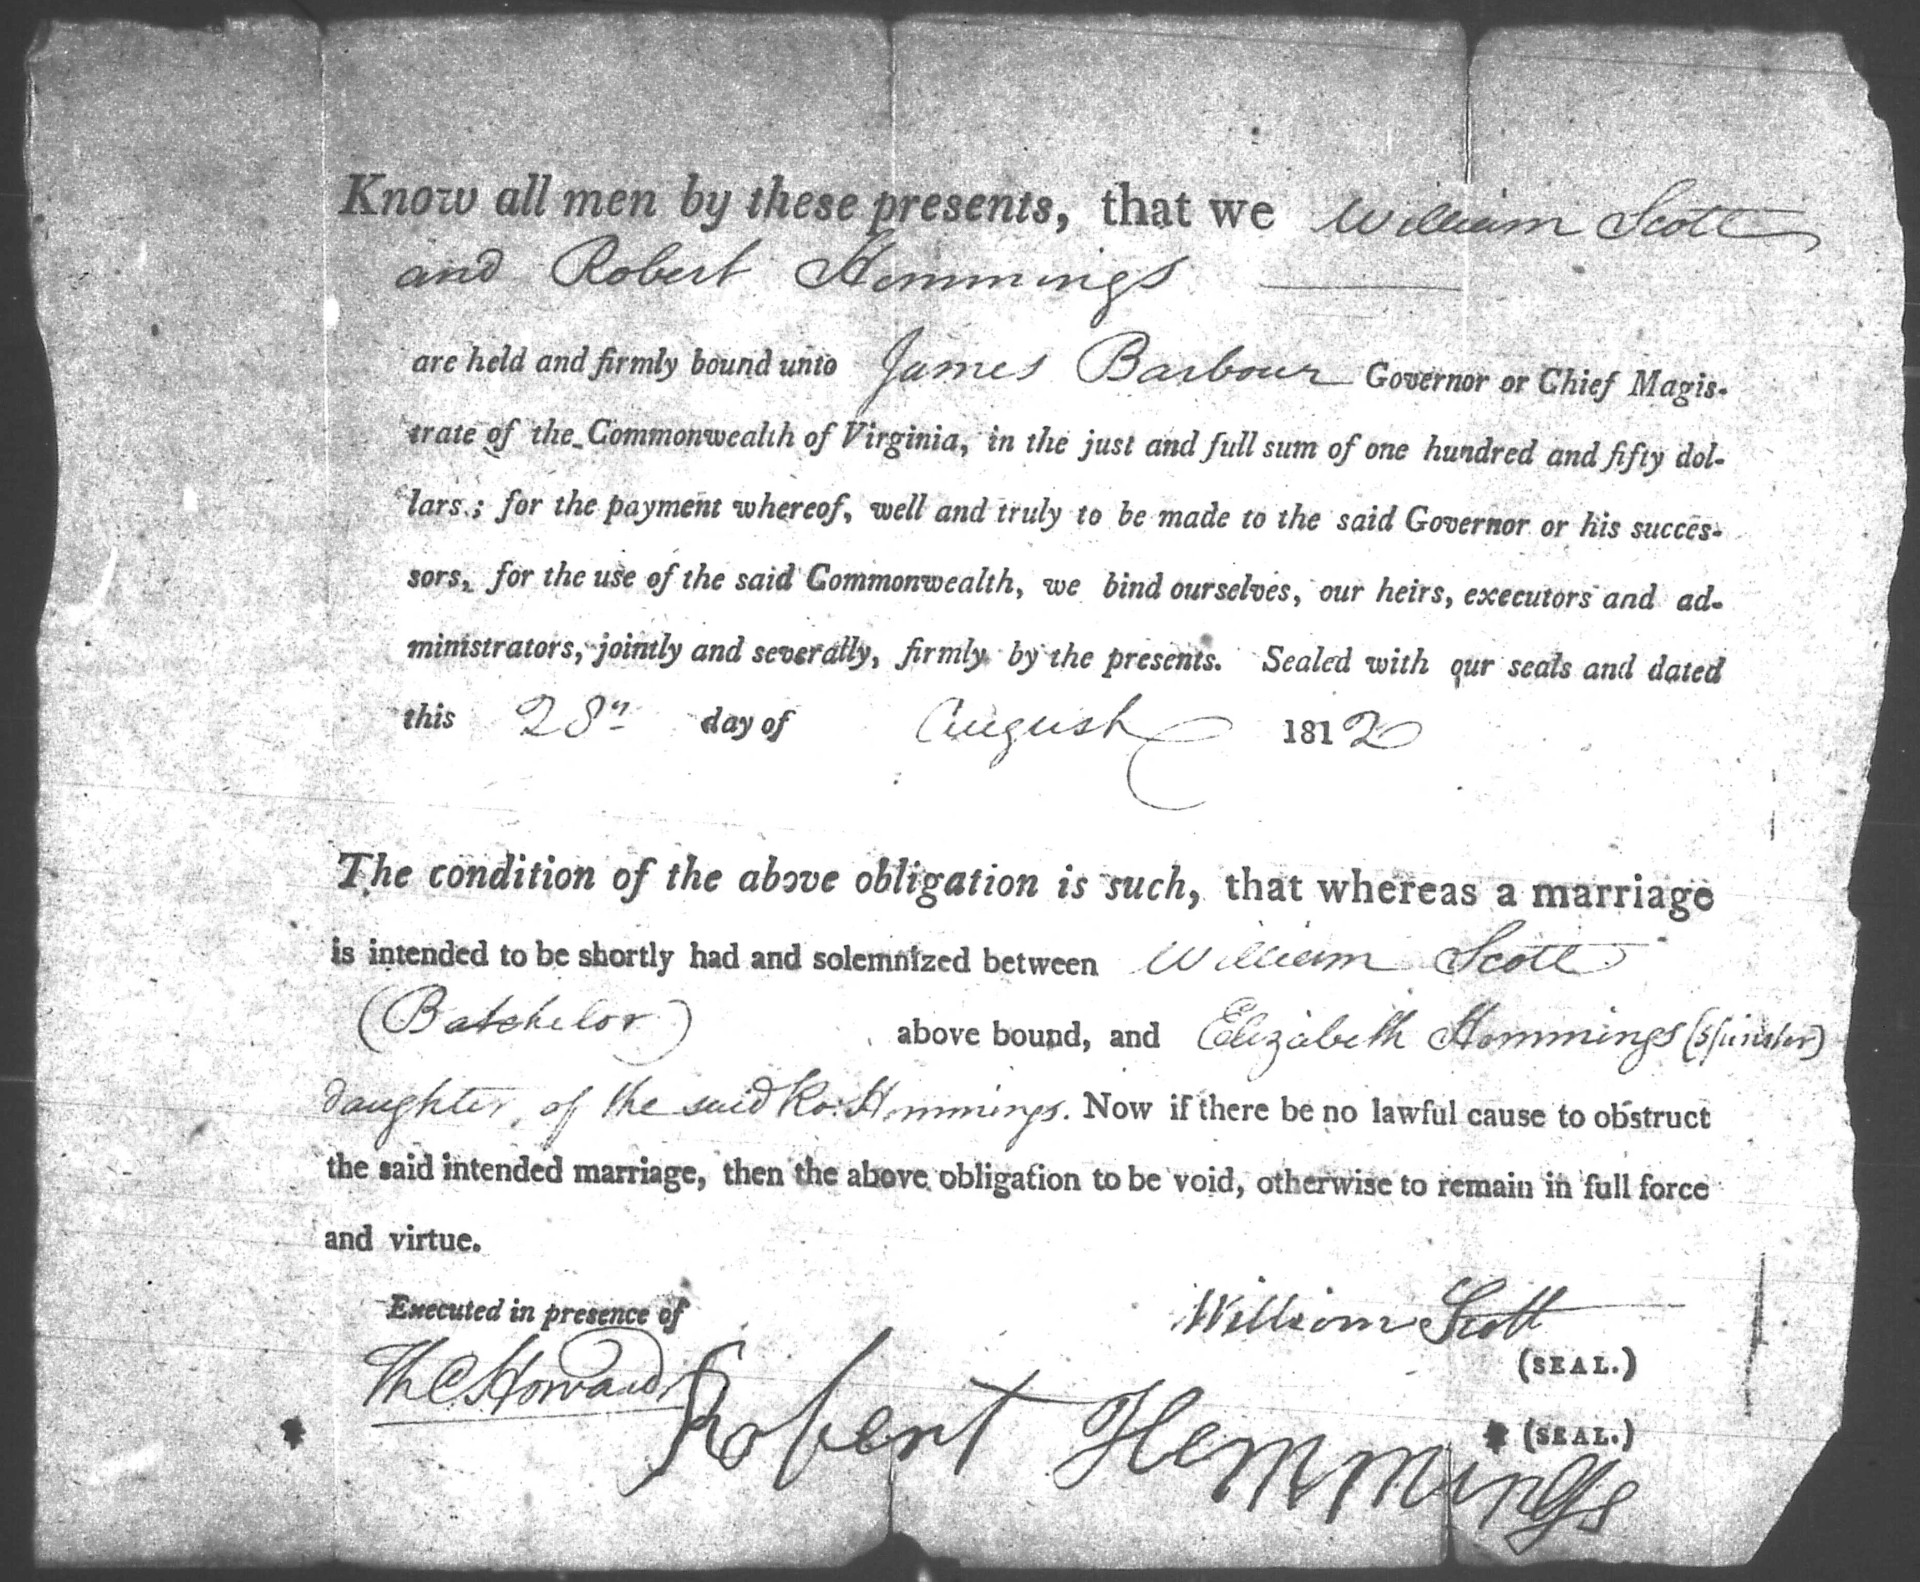 Know all men by these presents, that we William Scott
and Robert Hemmings
are held and firmly bound unto James Barbour Governor or Chief Magis-
trate of the Commonwealth of Virginia, in the just and full sum of one hundred and fifty dol-
lars; for the payment whereof, well and truly to be made to the said Governor or his succes-
sors, for the use of the said Commonwealth, we bind ourselves, our heirs, executors and ad-
ministrators, jointly and severally, firmly by the presents. Sealed with our seals and dated
this 28th day of August 1812
The condition of the above obligation is such, that whereas a marriage
is intended to be shortly had and solemnized between William Scott
(Batchelor) above bound, and Elizabeth Hemmings (Spinster)
daughter of the said Ro: Hemmings. Now if there be no lawful cause to obstruct
the said intended marriage, then the above obligation to be void, otherwise to remain in full force
and virtue.
Executed in presence of
William Scott
(SEAL.)
Th C Howard
Robert Hemmings
(SEAL.)